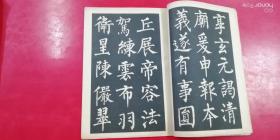 享玄元謁清
廟爰申報本
義遂有事圓
丘展帝容法
駕練雲布羽
衛星陳儼翠